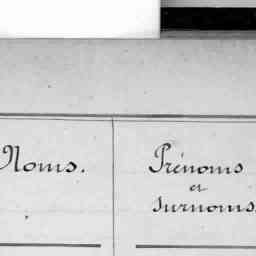 Noms.
Prénoms
et
surnoms.